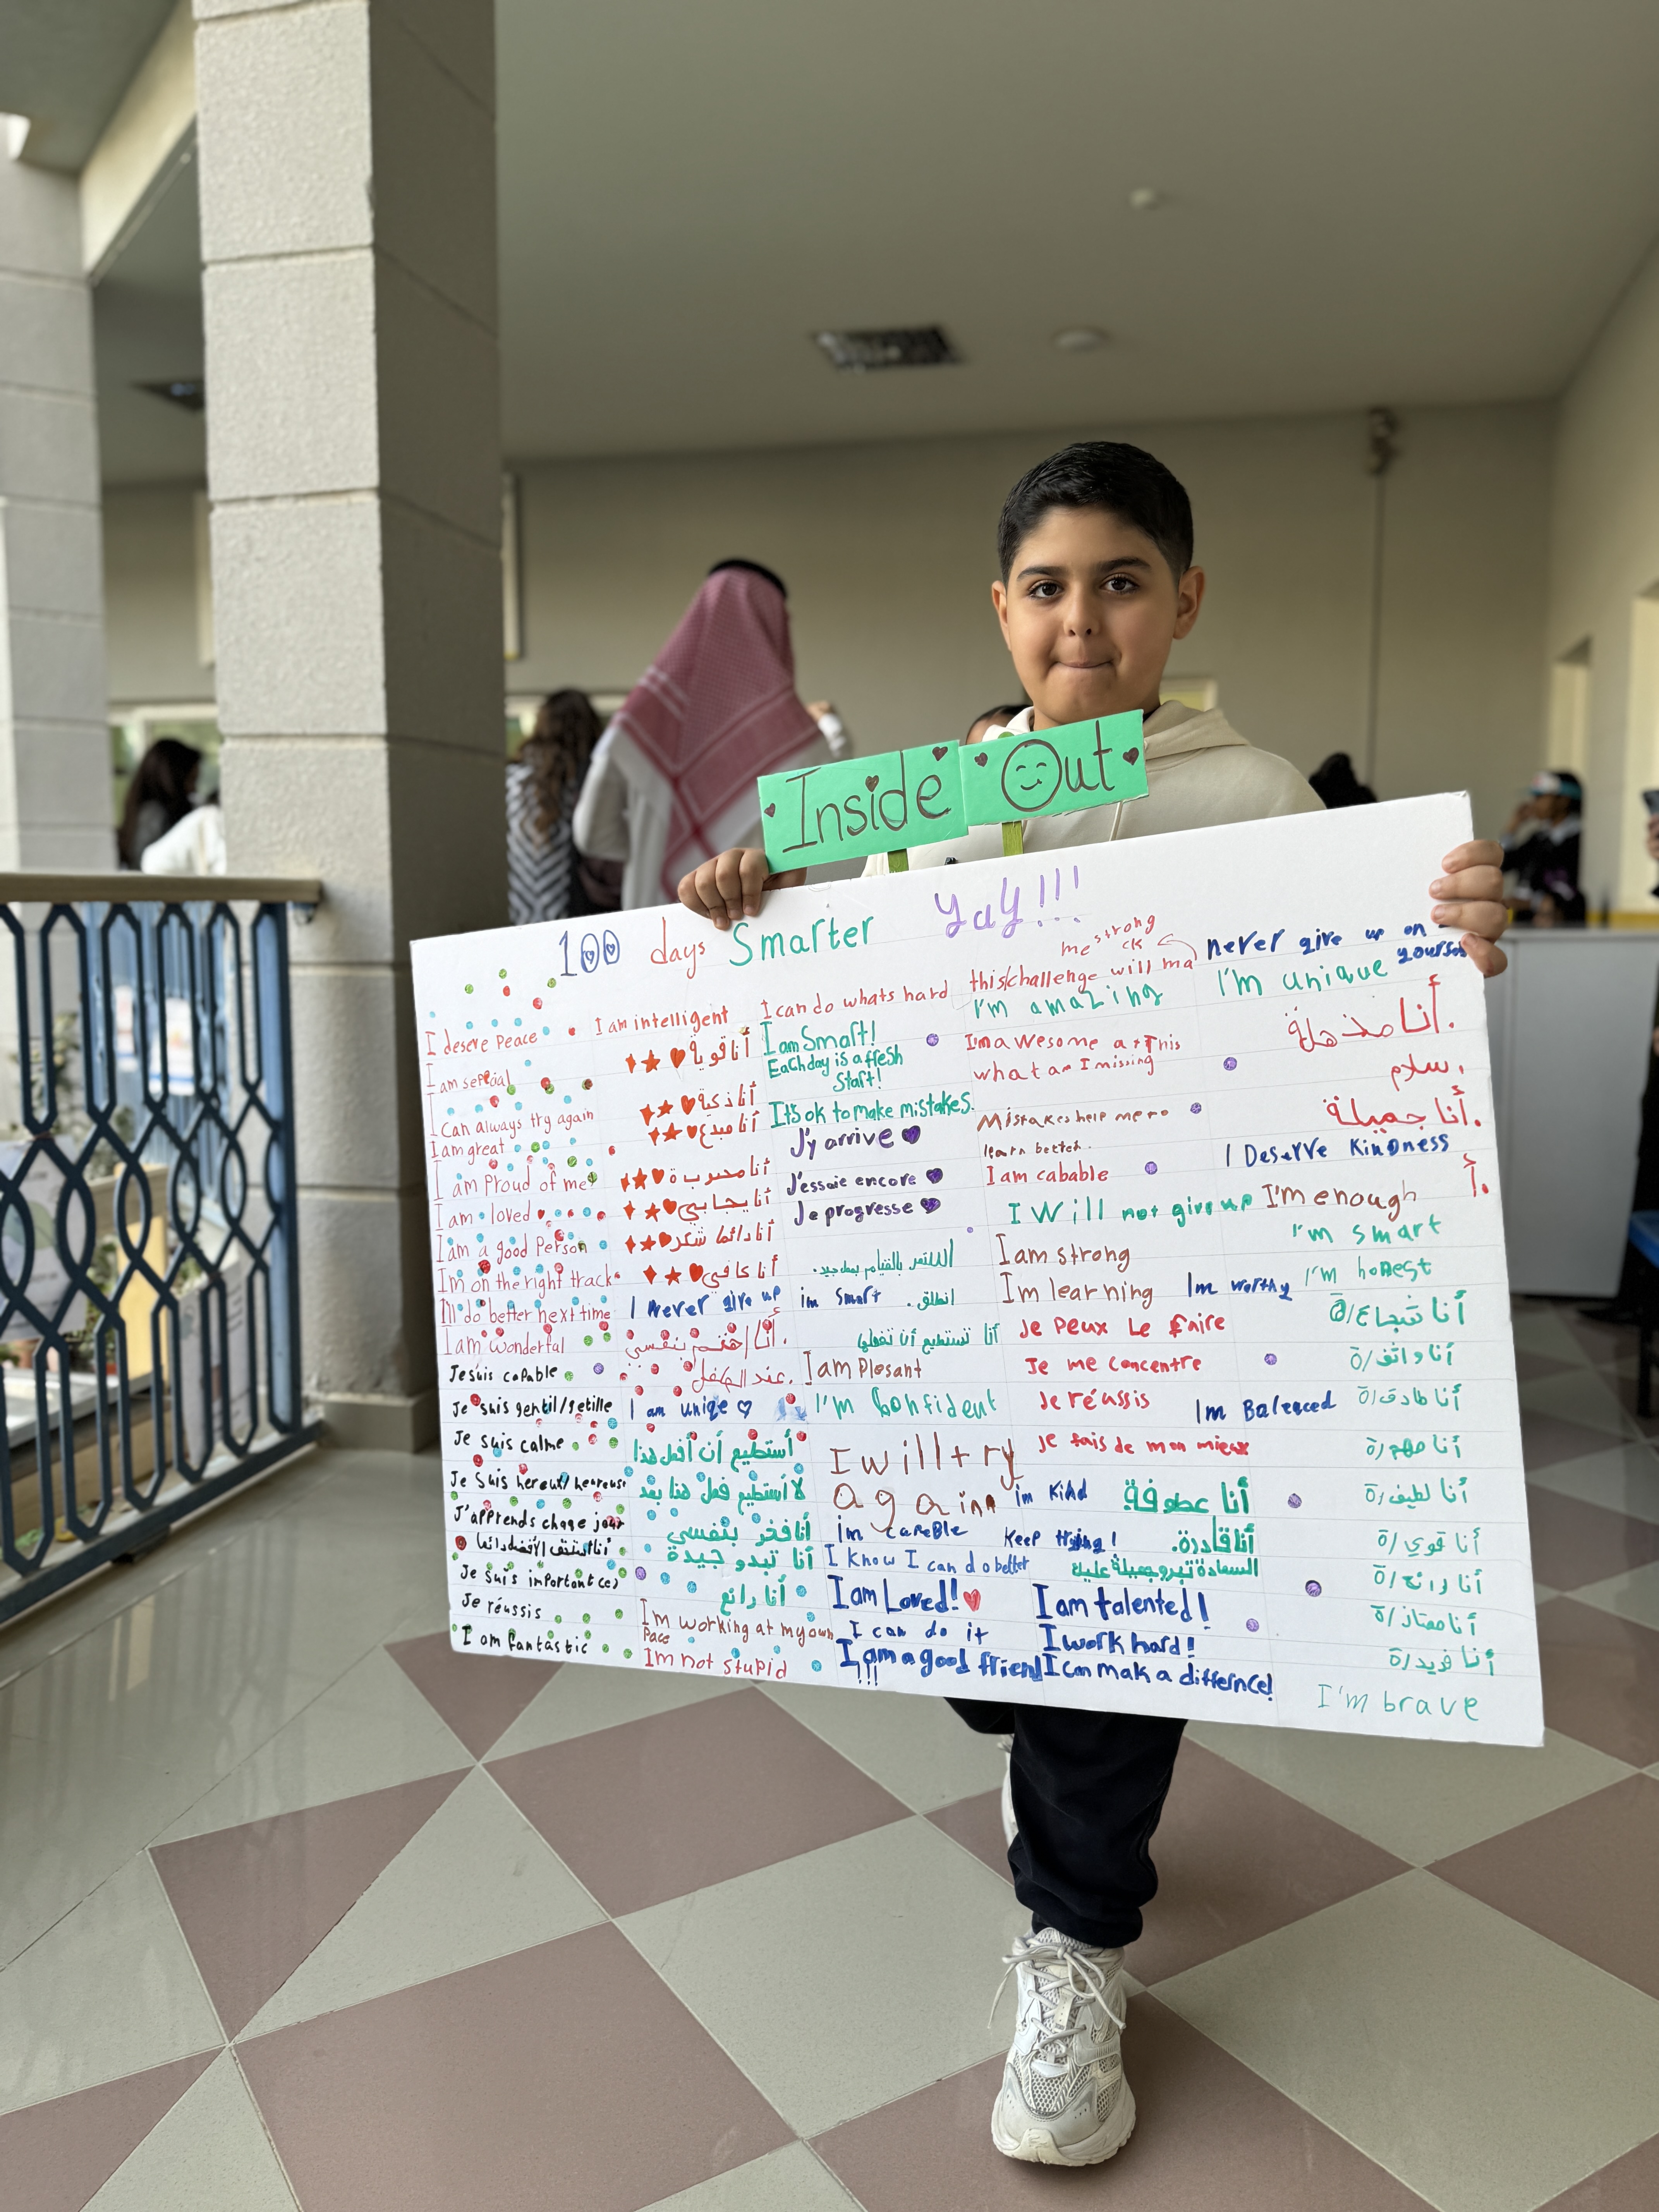 Inside Out
100 days Smarter Yay!!!
I desere Peace
I am sepcial
I can always try again
I am great
I am Proud of me
I am loved
I am a good Person
Im on the right track
Ill do better next time
I am wonderful
Je suis capable
Je suis gentil/getille
Je suis calme
Je Suis hereux/heareuse
J'apprends chaqe jour
Je suis important(e)
Je réussis
I am fantastic
I am intelligent
أنا قوية
أنا ذكية
أنا مبدع
أنا محبوبة
أنا كافي
I Never give up
I am uniqe
أستطيع أن أفعل هذا
لا أستطيع فعل هذا بعد
أنا فخر بنفسي
أنا تبدو جيدة
أنا رائع
I'm working at my own
Pace
Im not stupid
I can do whats hard
I am Smart!
Each day is a fresh
Start!
It's ok to make mistakes.
J'y arrive
J'essaie encore
Je progresse
im Smart
انطلق.
أنا تستطيع أن تفعلها
I am Plesant
I'm Confident
I will try
again
im careble
I know I can do better
I am Loved!
I can do it
I am a good friend
!!!
this challenge will ma
me strong
I'm amazing
Im awesome at This
what am I missing
Mistakes help me to
learn better.
I am cabable
I Will not give up
I am strong
Im learning
Je Peux Le faire
Je me concentre
Je réussis
Je fais de mon mieux
im Kind
أنا عطوفة
Keep trying!
أنا قادرة.
السعادة تبدو جميلة عليك
I am talented!
I work hard!
I can mak a differnce!
never give up on
yourse
I'm unique
أنا مذهلة.
سلام.
أنا جميلة.
I Deserve Kindness
أ.
I'm enough
I'm smart
I'm honest
Im worthy
أنا شجاع/ة
أنا واثق/ة
Im Balenced
أنا صادق/ة
أنا مهم/ة
أنا لطيف/ة
أنا قوي/ة
أنا رائع/ة
أنا ممتاز/ة
أنا فريد/ة
I'm brave